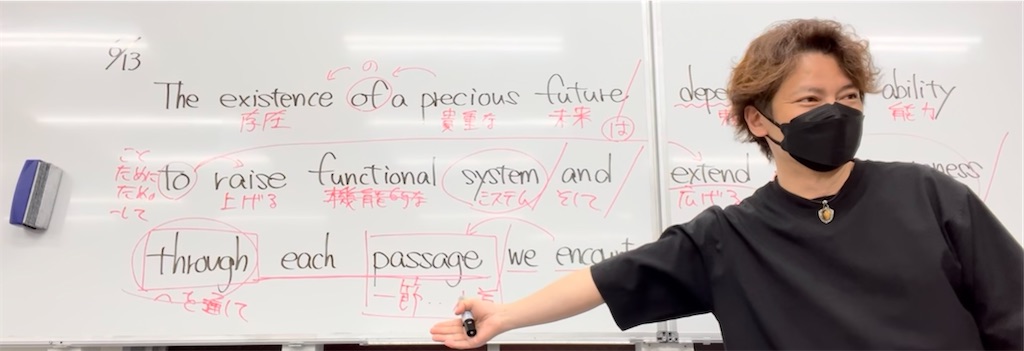 9/13
の
The existence of a precious future
存在 貴重な 未来 は
ability
能力
こと
ために
ための
〜して
to raise functional system and extend
上げる 機能的な システム そして 広げる
through each passage we
〜を通して 一節